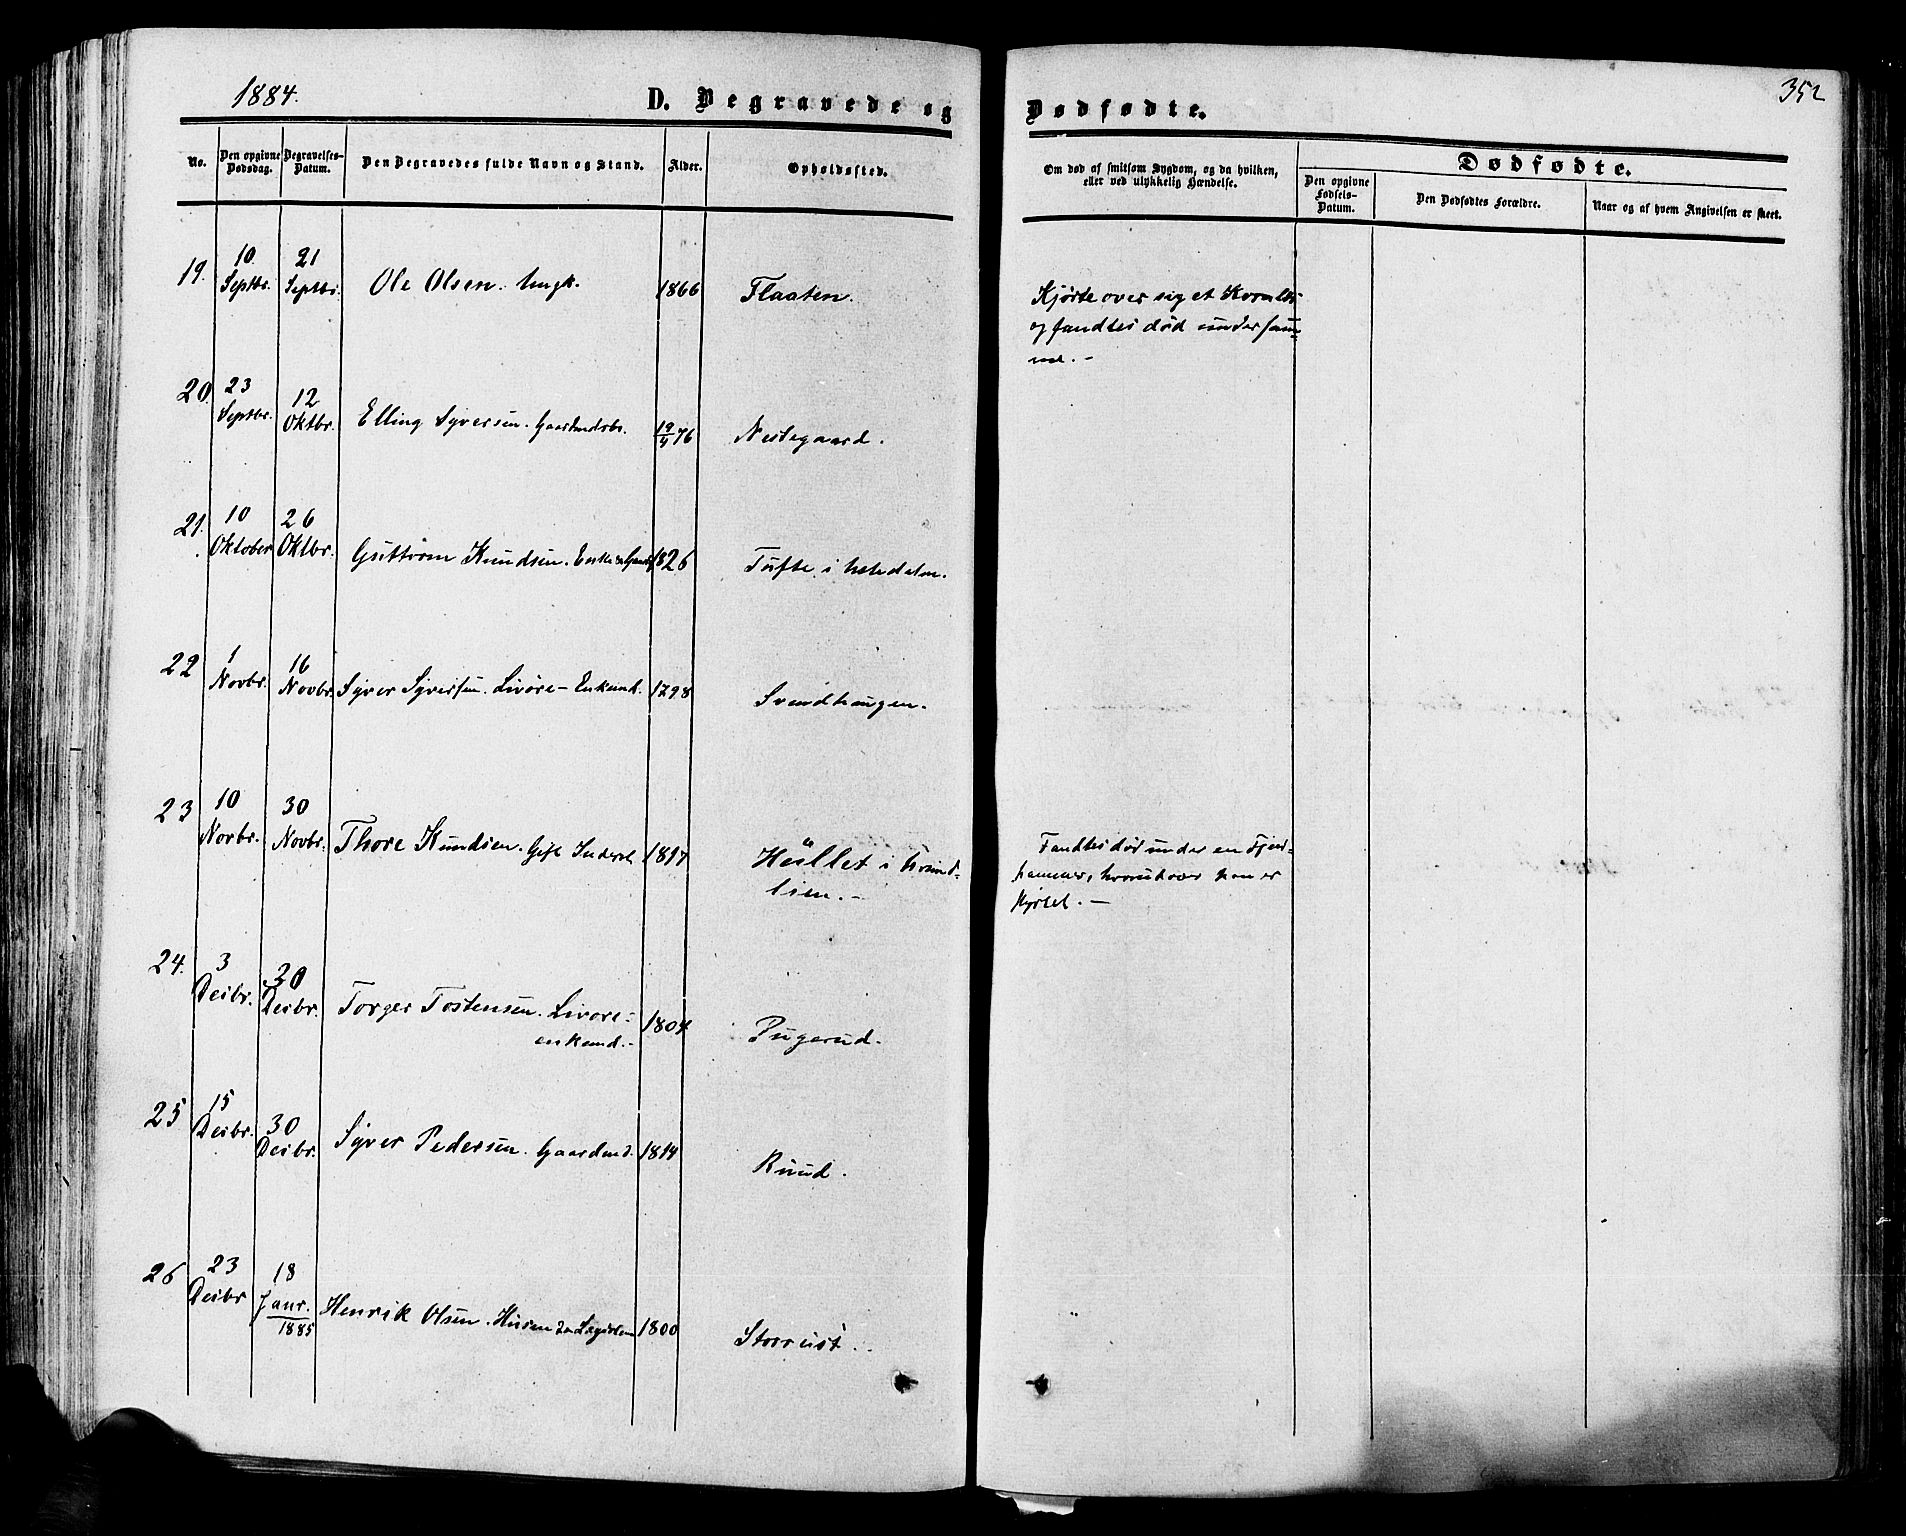 1884.
D. Begravede og Dødfødte.
352
No.
Den opgivne Dødsdag.
Begravelses-Datum.
Den Begravedes fulde Navn og Stand.
Alder.
Opholdssted.
Om død af smitsom Sygdom, og da hvilken, eller ved ulykkelig Hændelse.
Dødfødte.
Den opgivne Fødsels-Datum.
Den Dødfødtes Forældre.
Naar og af hvem Angivelsen er skeet.
19. 10 Septbr. 21 Septbr. Ole Olsen. Ungk. 1866 Flaaten.
Kjørte over sig et
og fandtes død under sam-
me. -
20. 23 Septbr. 12 Oktbr. Elling Syversen. 19/4 76 Nestegaard.
21. 10 Oktober 26 Oktbr. Guttorm Knudsen. 1826 Tufte i
22 1 Novbr. 16 Novbr. Syver Syversen. Livøre- Enkemd. 1798 Svendhaugen.
23 10 Novbr. 30 Novbr. Thore Knudsen. Gift Inderst 1817 Hullet i
lien. -
Fandtes død under en
han er
24. 3 Decbr. 30 Decbr. Torger Tostensen. Livøre-
enkemd. - 1804 Pugerud.
25 15 Decbr. 30 Decbr. Syver Pedersen. Gaardmd. 1814 Ruud.
26 23 Decbr 18 Janr. 1885 Henrik Olsen. 1800 Storrust.